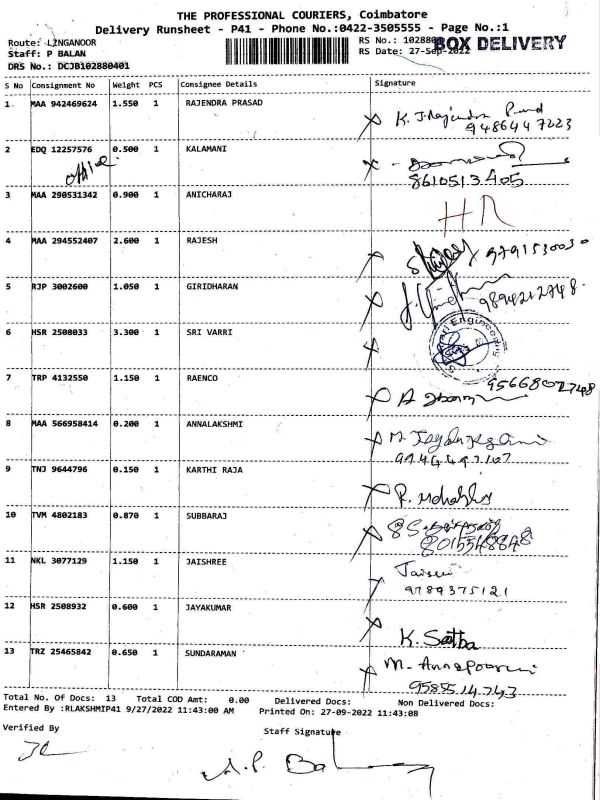 THE PROFESSIONAL COURIERS, Coimbatore
Delivery Runsheet - P41 - Phone No.:0422-3505555 - Page No.:1
Route: LINGANOOR
Staff: P BALAN
DRS No.: DCJB102880401
RS No.: 1028804
RS Date: 27-Sep-2022
BOX DELIVERY
S No Consignment No Weight PCS Consignee Details Signature
1 MAA 942469624 1.550 1 RAJENDRA PRASAD
9486447223
2 EDQ 12257576 0.500 1 KALAMANI
office
8610513405
3 MAA 290531342 0.900 1 ANICHARAJ
4 MAA 294552407 2.600 1 RAJESH
9791530030
5 RJP 3002600 1.050 1 GIRIDHARAN
9894212748
6 HSR 2508033 3.300 1 SRI VARRI
Engineering
7 TRP 4132550 1.150 1 RAENCO
8 MAA 566958414 0.200 1 ANNALAKSHMI
9 TNJ 9644796 0.150 1 KARTHI RAJA
10 TVM 4802183 0.870 1 SUBBARAJ
8015548848
11 NKL 3077129 1.150 1 JAISHREE
9789375121
12 HSR 2508932 0.600 1 JAYAKUMAR
K. Satba
13 TRZ 25465842 0.650 1 SUNDARAMAN
M. Annapoorni
9585514743
Total No. Of Docs: 13 Total COD Amt: 0.00 Delivered Docs: Non Delivered Docs:
Entered By :RLAKSHMIP41 9/27/2022 11:43:00 AM Printed On: 27-09-2022 11:43:08
Verified By Staff Signature
A.P. Bal